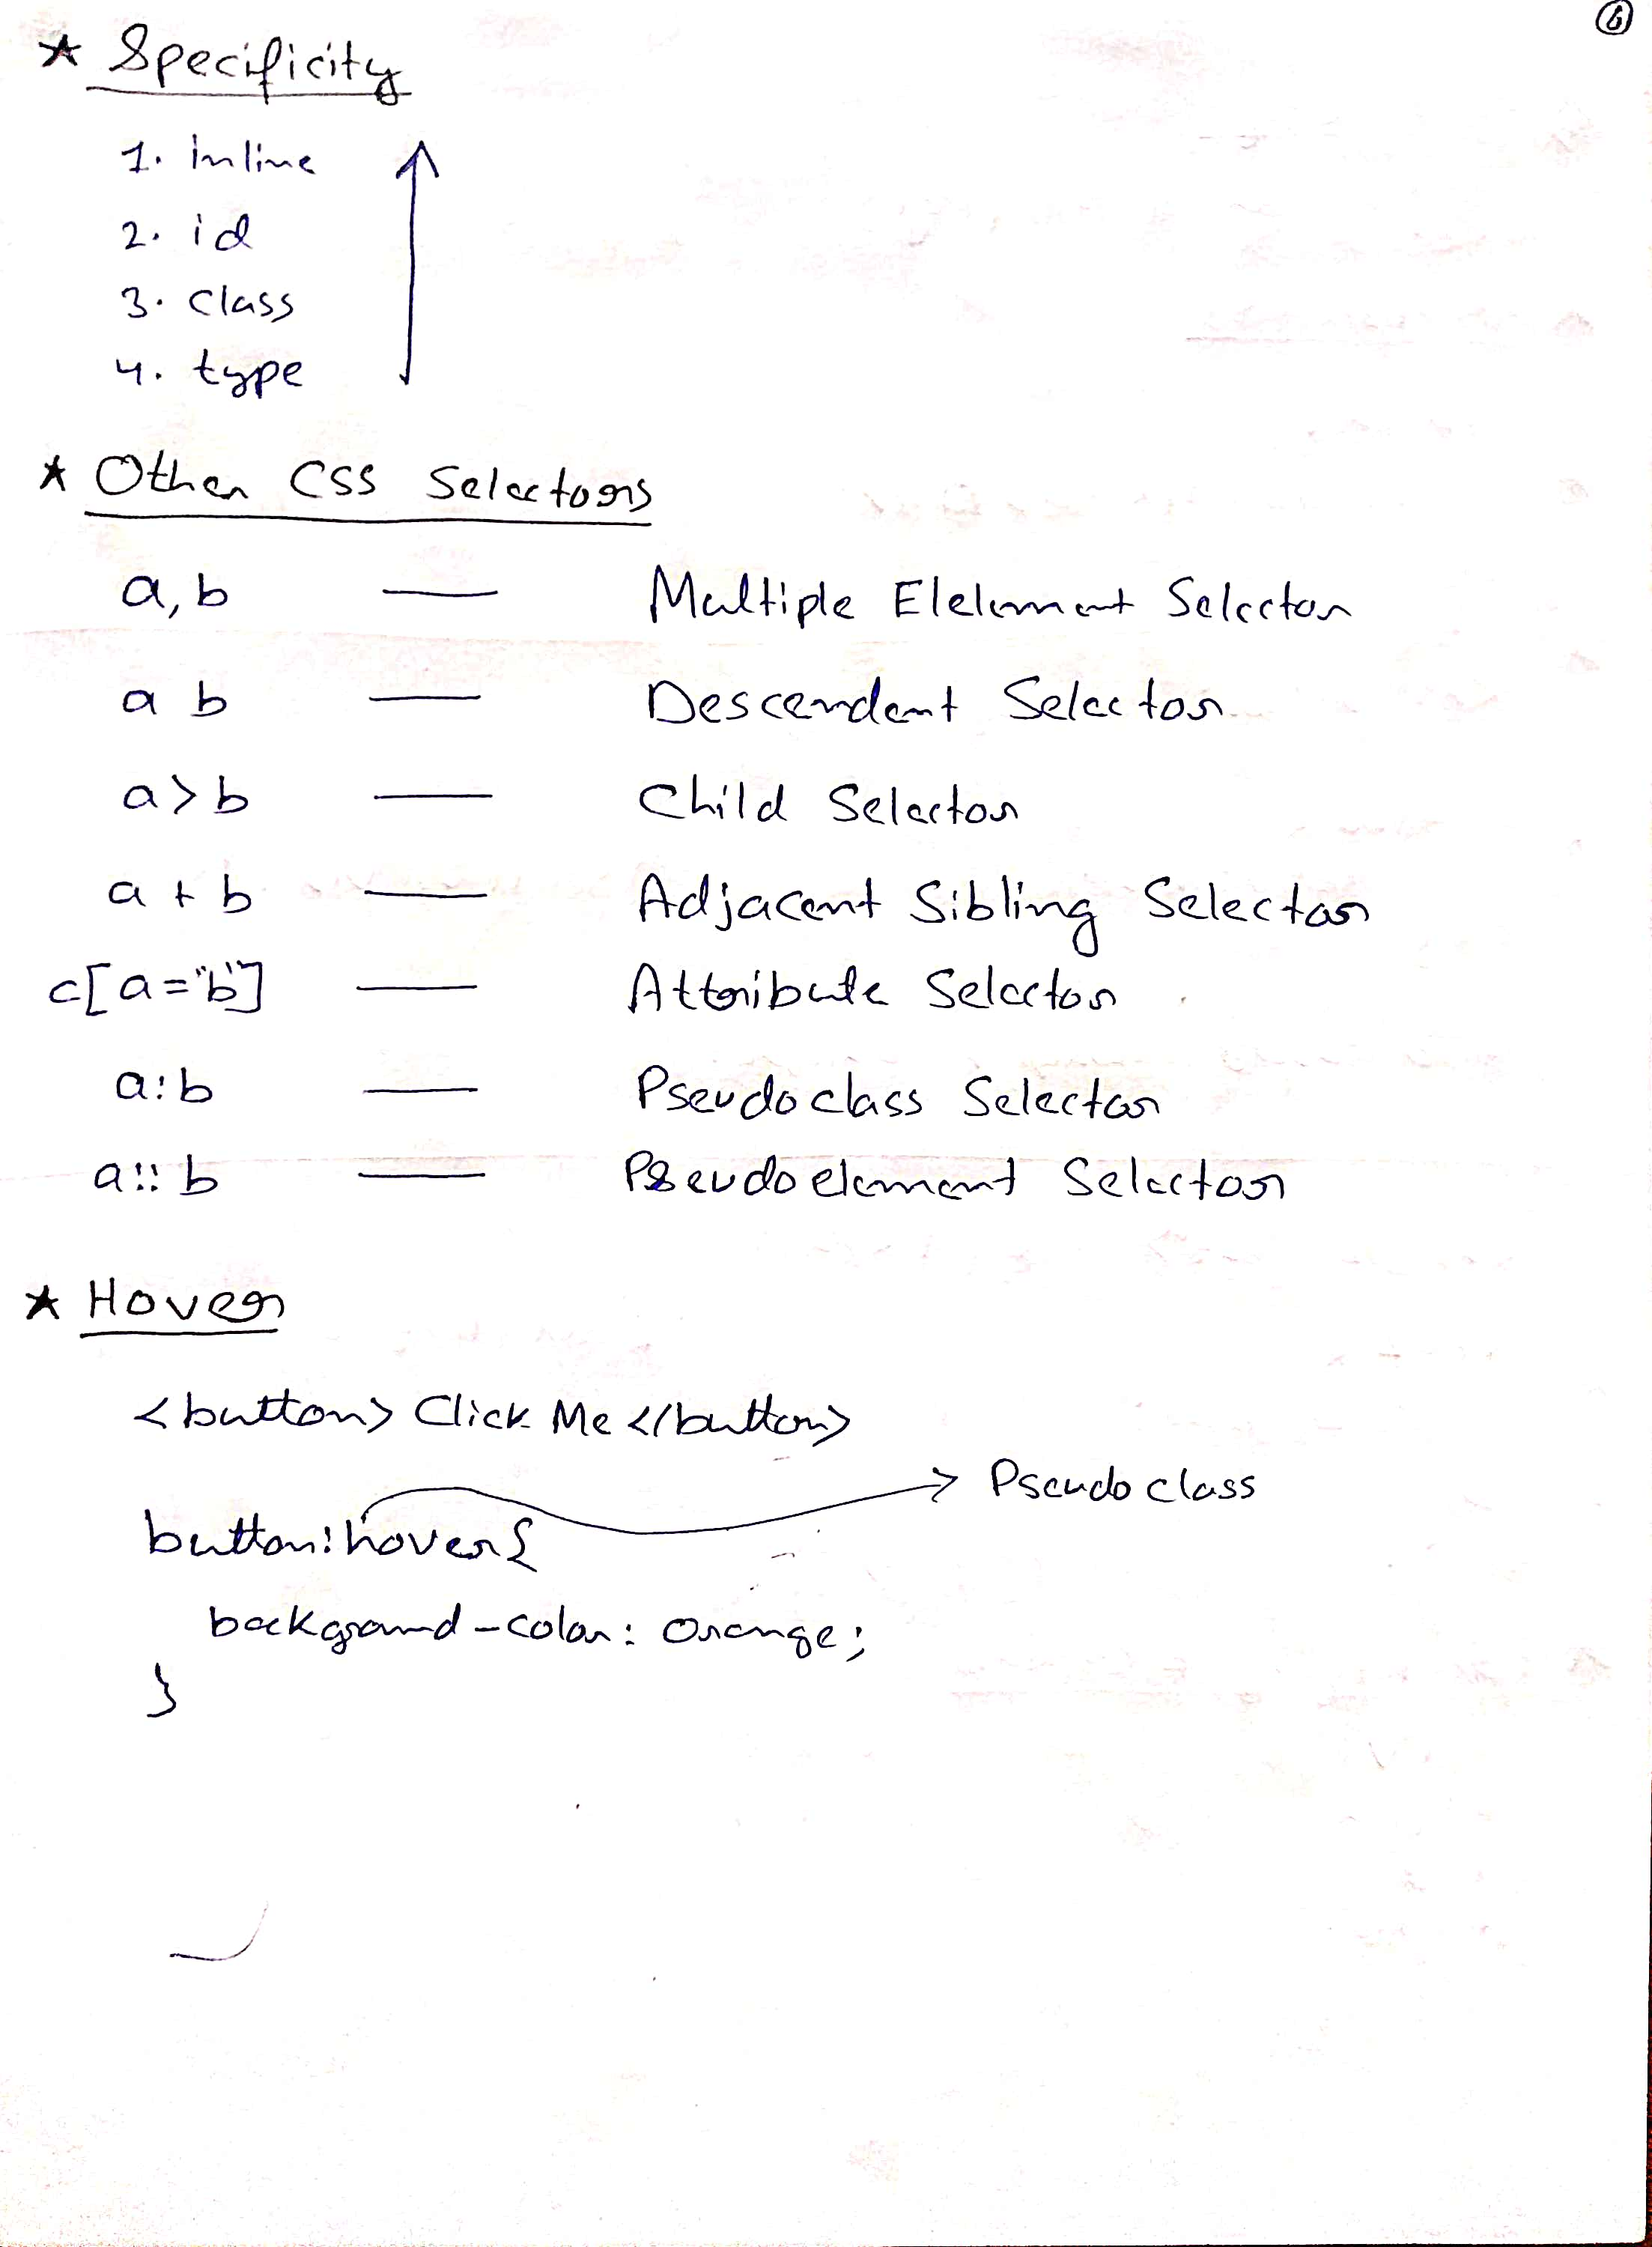 6
* Specificity
1. inline
2. id
3. class
4. type
* Other CSS Selectors
a, b — Multiple Elelement Selector
a b — Descendent Selector
a > b — Child Selector
a + b — Adjacent Sibling Selector
c[a="b"] — Attribute Selector
a:b — Pseudoclass Selector
a::b — Pseudoelement Selector
* Hover
<button> Click Me </button>
→ Pseudo class
button:hover{
background-color: orange;
}